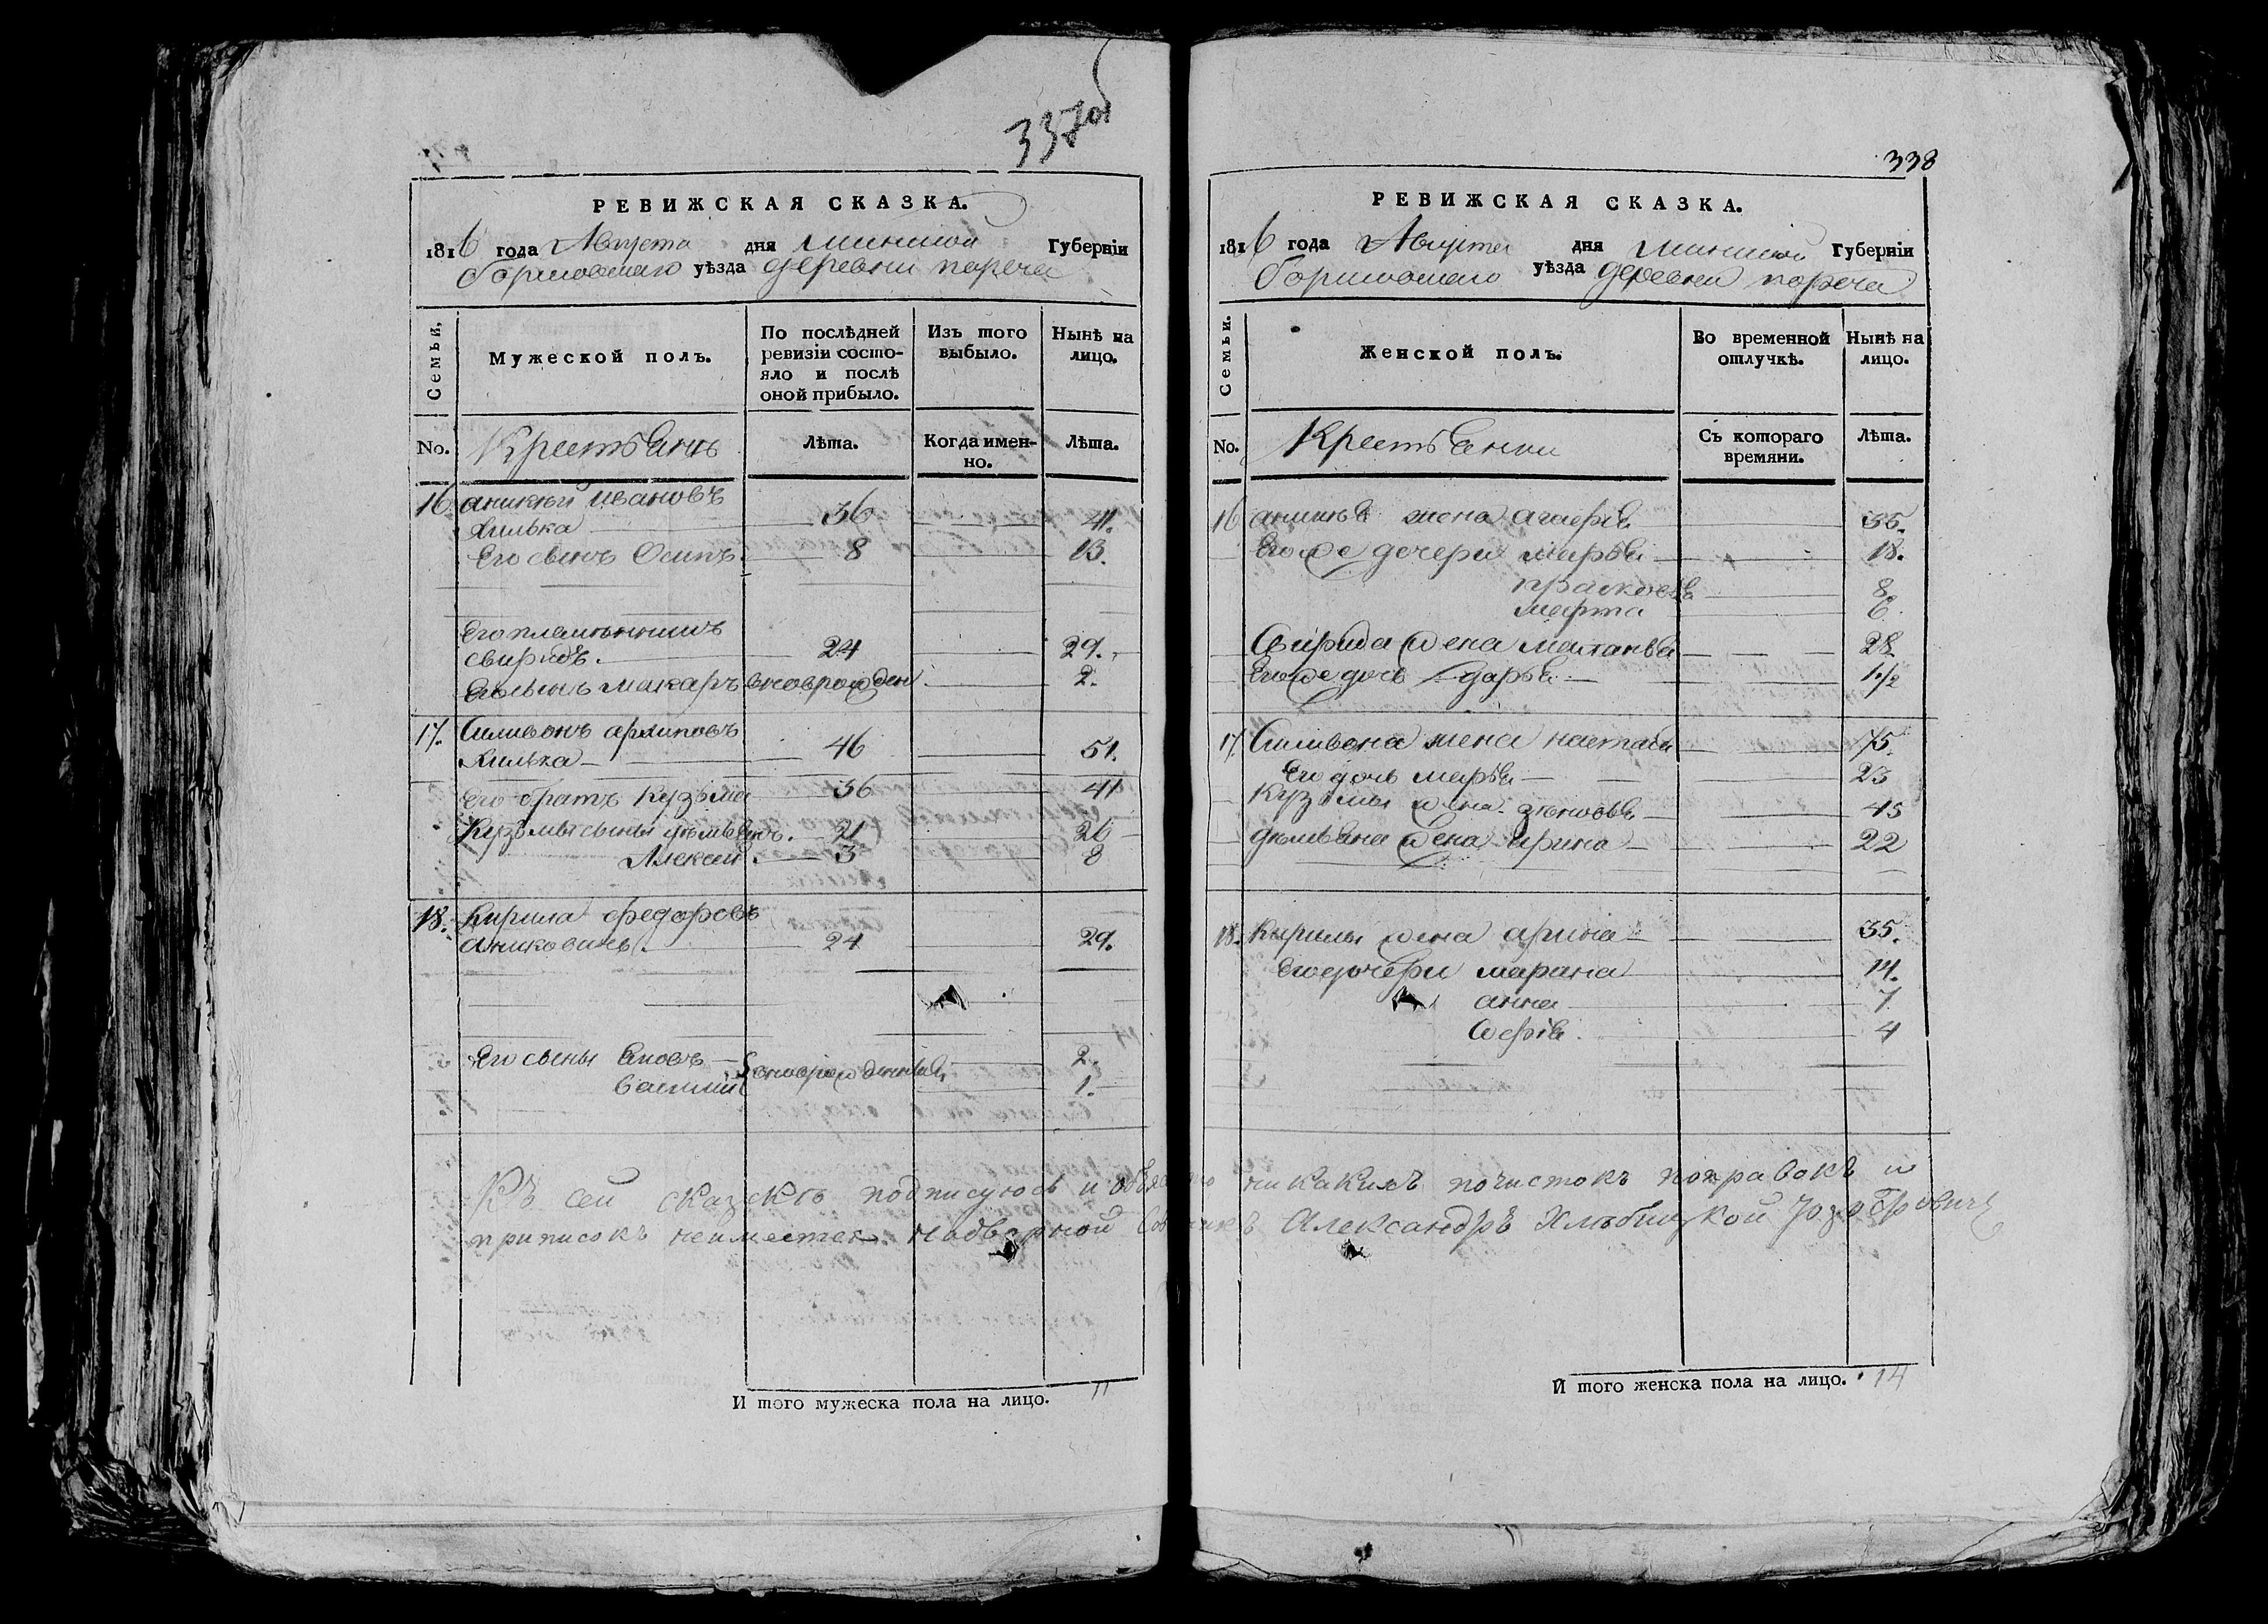 337об
РЕВИЖСКАЯ СКАЗКА.
1816 года Августа дня минской Губерніи
борисовскаго уѣзда деревни пореча
Семьи.
Мужеской полъ.
По послѣдней ревизіи состо-
яло и послѣ
оной прибыло.
Изъ того выбыло.
Нынѣ на лицо.
No.
Крестьянъ
Лѣта.
Когда имен-
но.
Лѣта.
16 аникѣй ивановъ
Хилька 36 41.
Его сынъ Осипъ. 8 13.
Его племянникъ
свиридъ. 24 29.
Его сынъ макаръ вновророжден 2.
17. Силивонъ архиповъ
Хилька 46 51.
Его братъ Кузьма 36 41
Кузьмы сыны демьянъ. 21 26
Алексей. 3 8
18. Кирила федоровъ
аниковичъ. 24 29.
Его сыны яковъ 2.
василий 1.
Къ сей сказкѣ подписуюсь и никакихъ почистокъ поправокъ и
приписокъ неиместся надворной Александръ Хлѣбицкой
И того мужеска пола на лицо. 11
338
РЕВИЖСКАЯ СКАЗКА.
1816 года Августа дня минской Губерніи
борисовскаго уѣзда деревни пореча
Семьи.
Женской полъ.
Во временной отлучкѣ.
Нынѣ на лицо.
No.
Крестьянки
Съ котораго времяни.
Лѣта.
16 жена 35.
Его же дочери марья 18.
прасковья 8
марта 6.
Свирида жена маланья 28
Его же дочь дарья 1 1/2
17. Силивона жена настася 45.
Его дочь марья 23
Кузьмы жена зеновья 45
демьяна жена ирина 22
18. Кирилы жена арина 35.
Его дочери марана 14.
анна 7
4
И того женска пола на лицо. 14